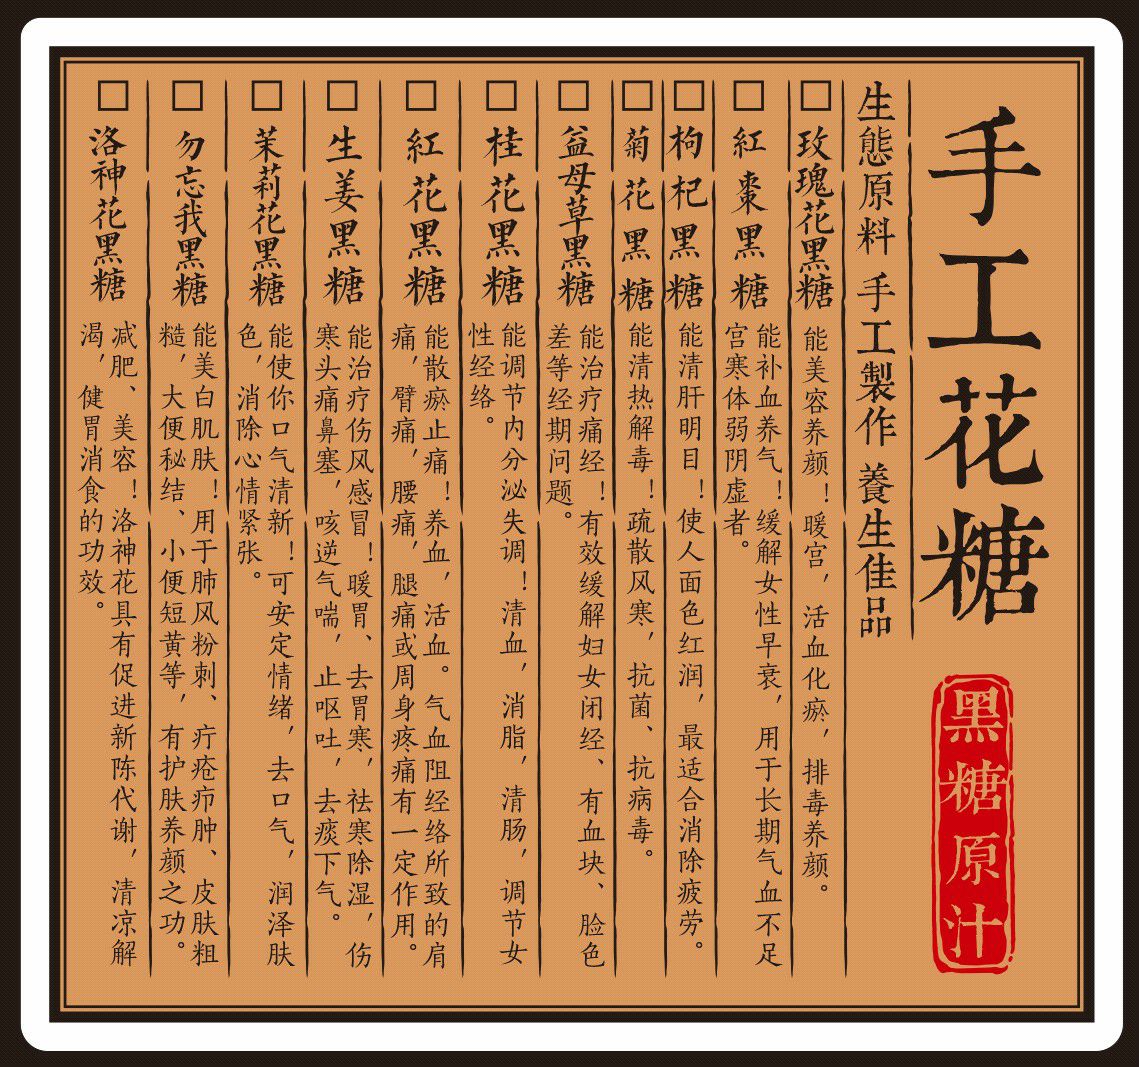 手工花糖
黑糖原汁
生態原料 手工製作 養生佳品
□ 玫瑰花黑糖
能美容养颜！暖宫，活血化瘀，排毒养颜。
□ 紅棗黑糖
能补血养气！缓解女性早衰，用于长期气血不足
宫寒体弱阴虚者。
□ 枸杞黑糖
能清肝明目！使人面色红润，最适合消除疲劳。
□ 菊花黑糖
能清热解毒！疏散风寒，抗菌、抗病毒。
□ 益母草黑糖
能治疗痛经！有效缓解妇女闭经、有血块、脸色
差等经期问题。
□ 桂花黑糖
能调节内分泌失调！清血，消脂，清肠，调节女
性经络。
□ 紅花黑糖
能散瘀止痛！养血，活血。气血阻经络所致的肩
痛，臂痛，腰痛，腿痛或周身疼痛有一定作用。
□ 生姜黑糖
能治疗伤风感冒！暖胃、去胃寒，祛寒除湿，伤
寒头痛鼻塞，咳逆气喘，止呕吐，去痰下气。
□ 茉莉花黑糖
能使你口气清新！可安定情绪，去口气，润泽肤
色，消除心情紧张。
□ 勿忘我黑糖
能美白肌肤！用于肺风粉刺、疔疮疖肿、皮肤粗
糙，大便秘结、小便短黄等，有护肤养颜之功。
□ 洛神花黑糖
减肥、美容！洛神花具有促进新陈代谢，清凉解
渴，健胃消食的功效。